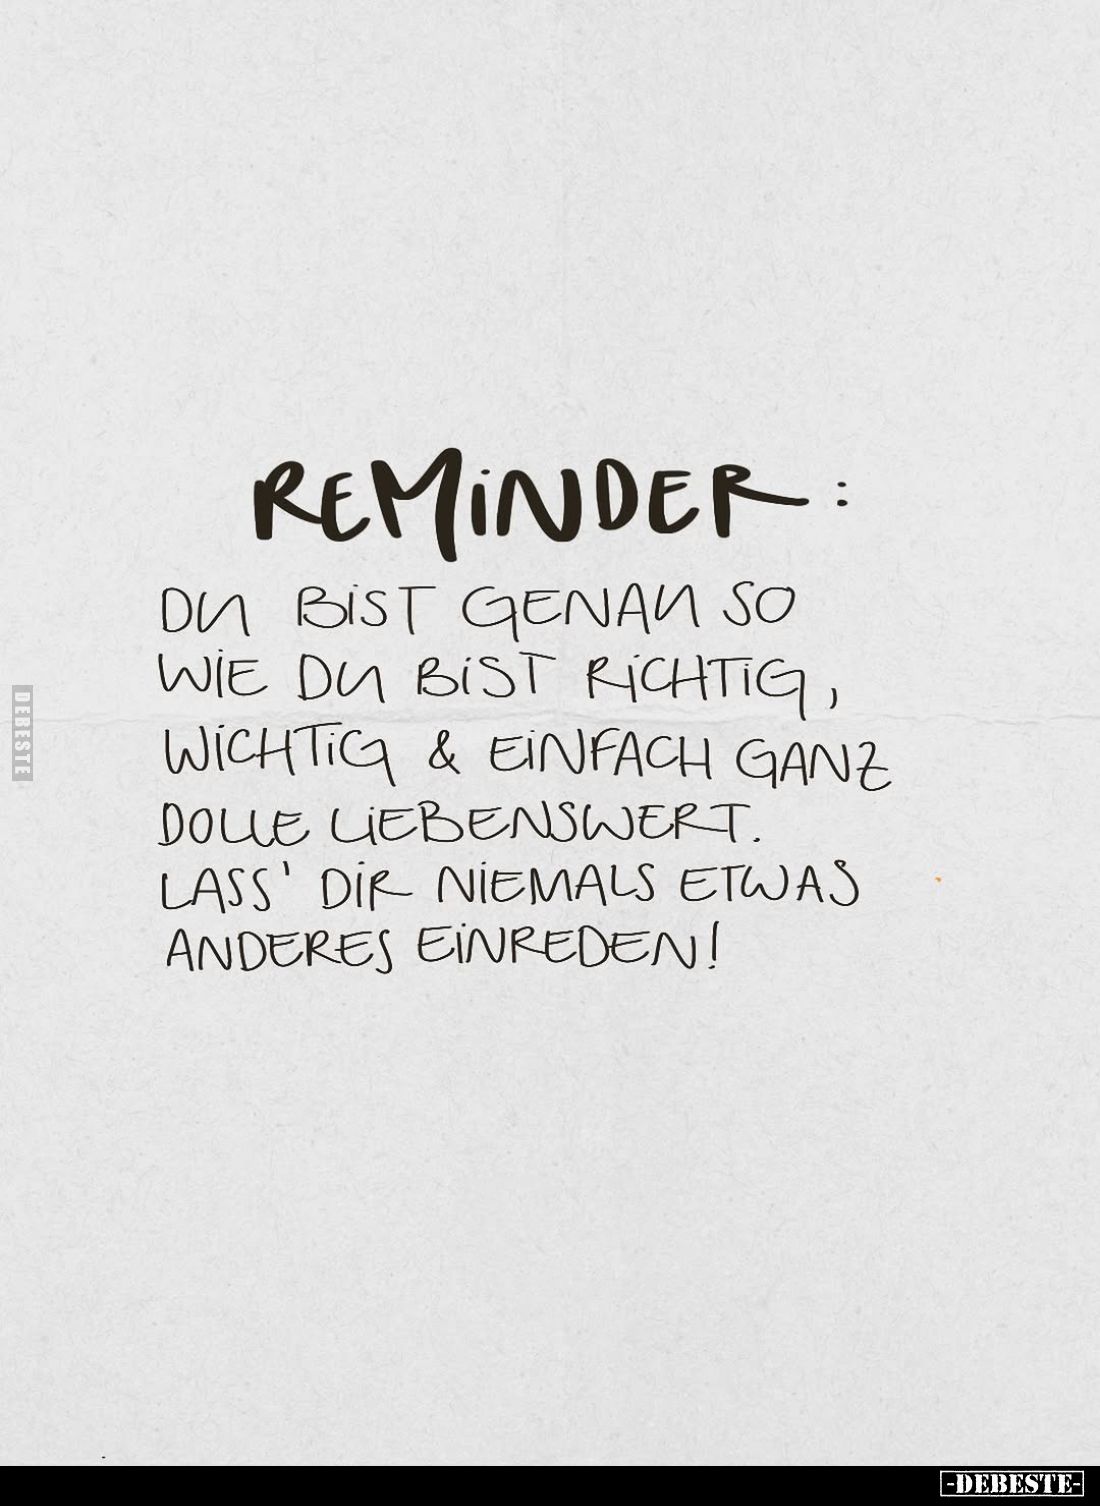 REMINDER:
DU BIST GENAU SO
WIE DU BIST RICHTIG,
WICHTIG & EINFACH GANZ
DOLLE LIEBENSWERT.
LASS' DIR NIEMALS ETWAS
ANDERES EINREDEN!
DEBESTE
-DEBESTE-